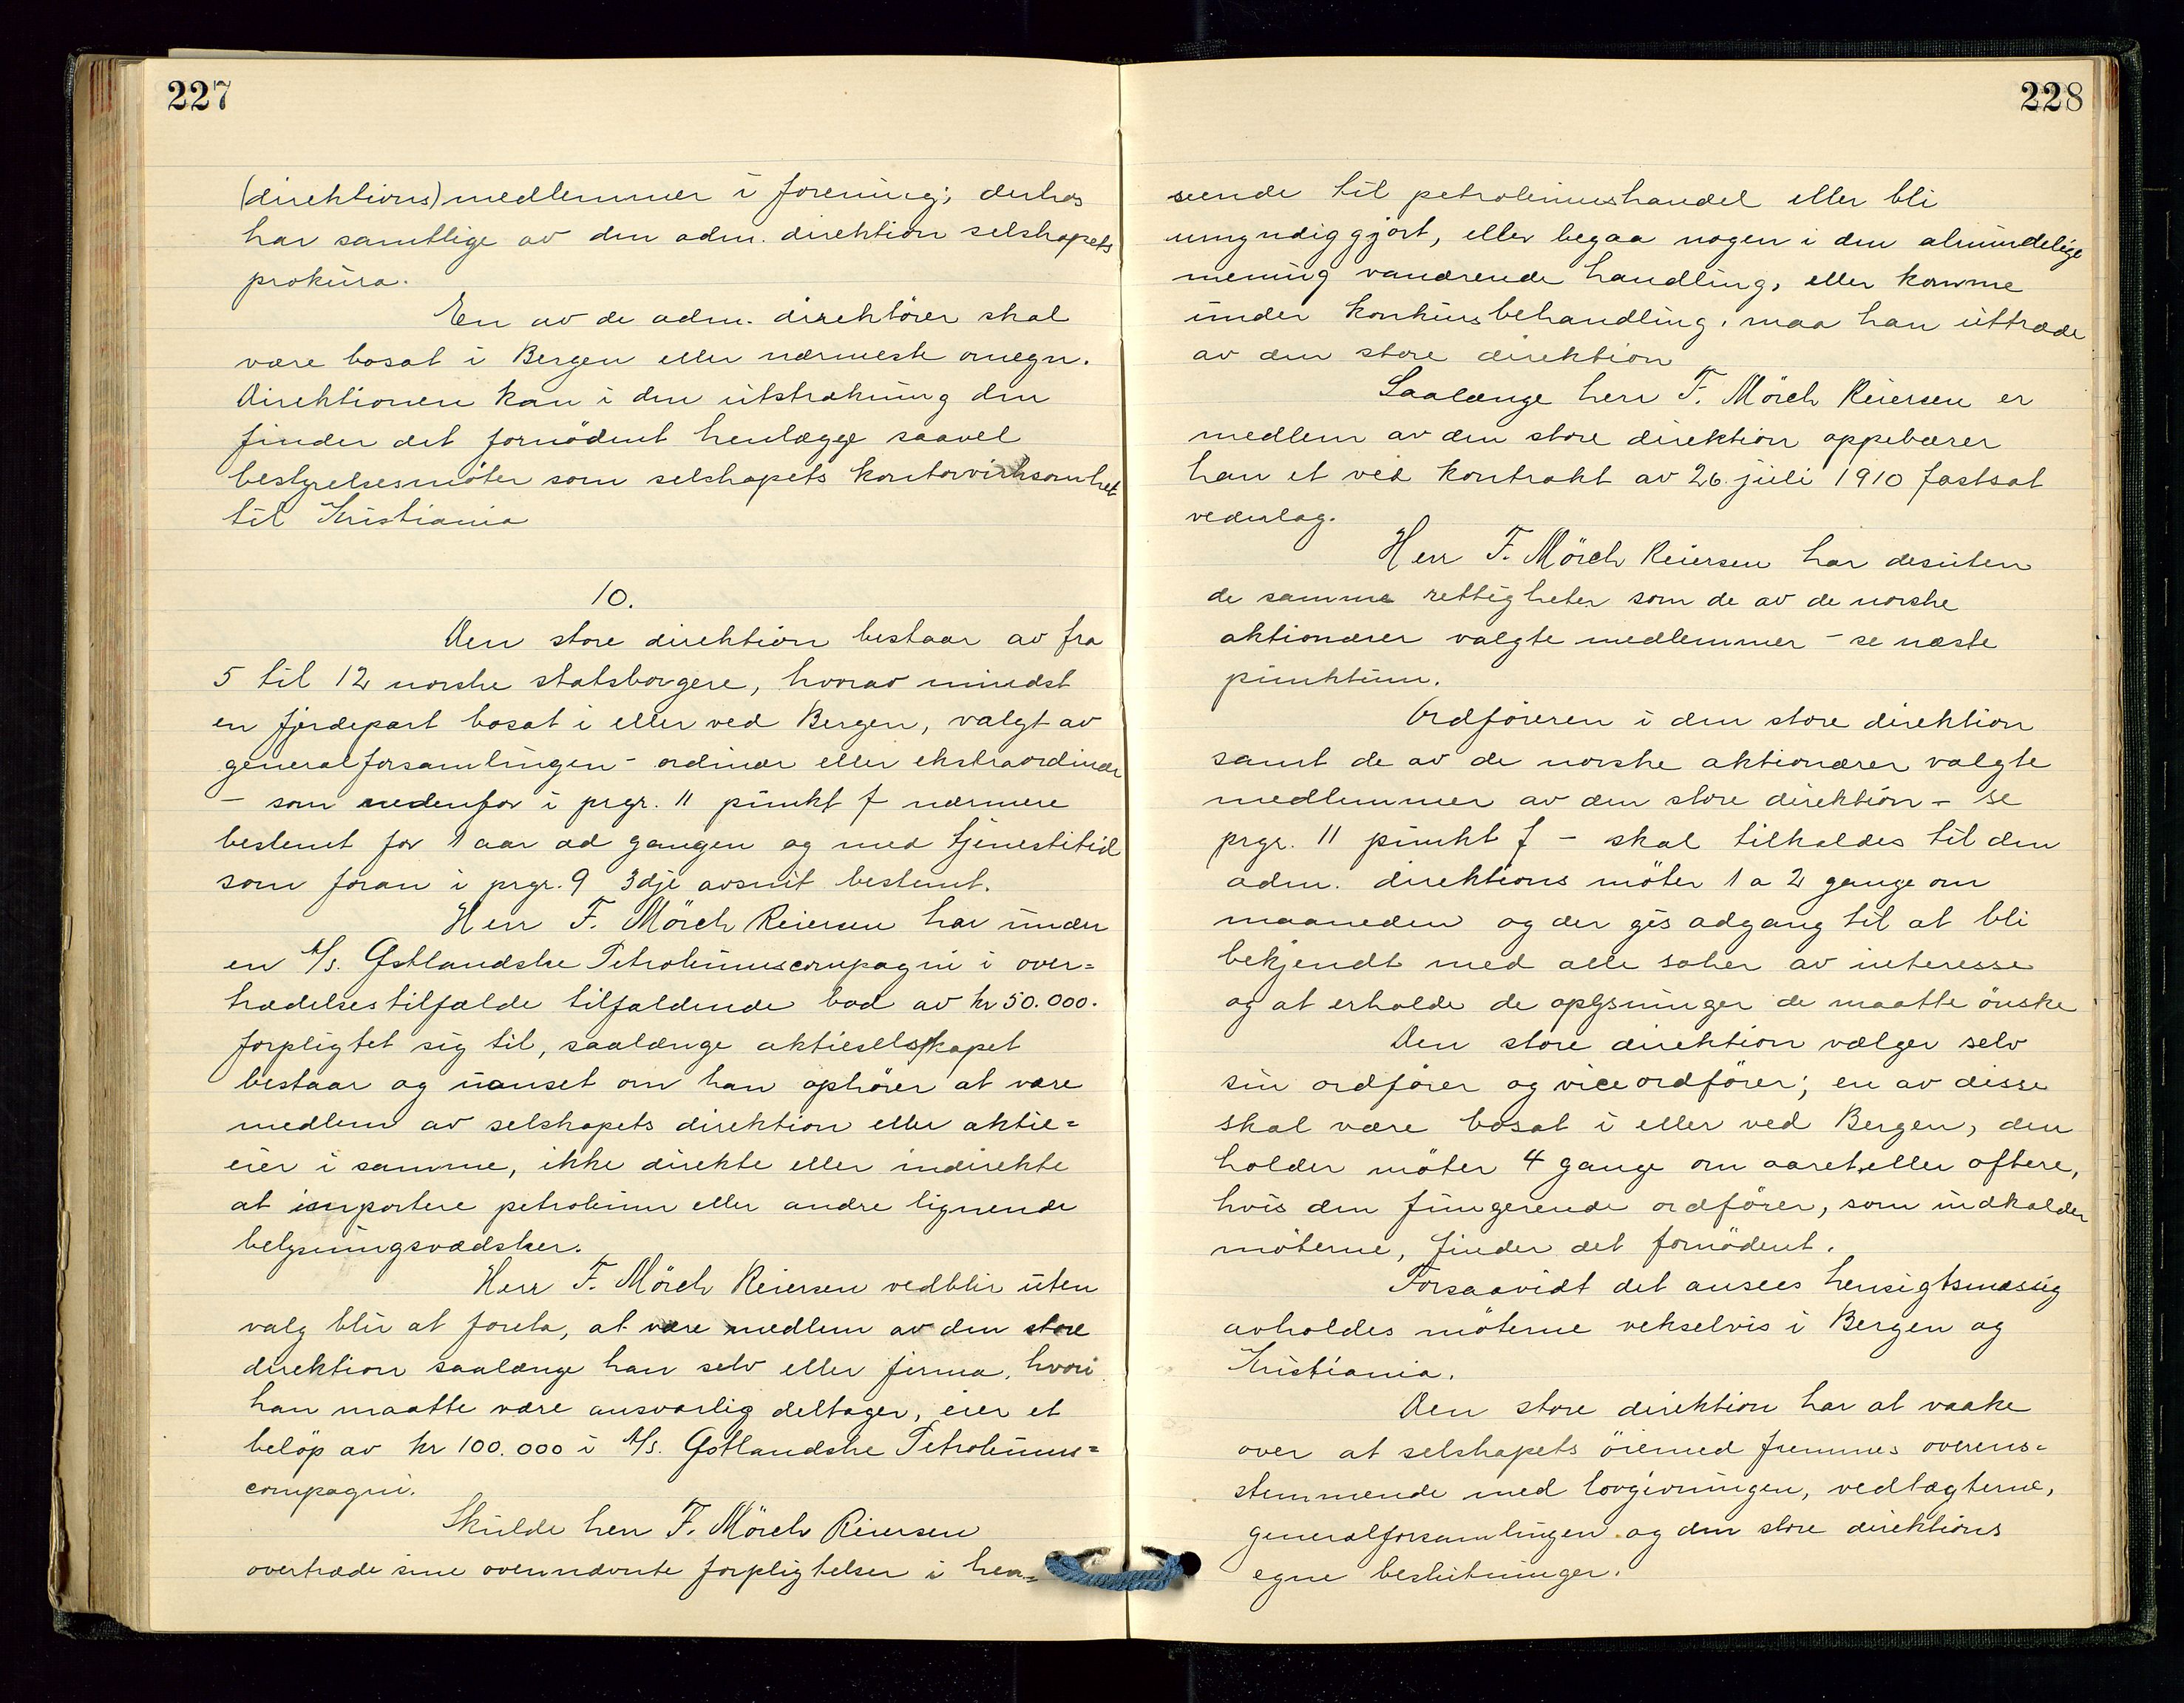 227
(direktions) medlemmer i forening; derhos
har samtlige av den adm. direktion selskapets
prokura.
En av de adm. direktörer skal
være bosat i Bergen eller nærmeste omegn.
Direktionen kan i den utstrækning den
finder det fornödent henlægge saavel
bestyrelsesmöter som selskapets kontorvirksomhet
til Kristiania
10.
Den store direktion bestaar av fra
5 til 12 norske statsborgere, hvorav mindst
en fjerdepart bosat i eller ved Bergen, valgt av
generalforsamlingen - ordinær eller ekstraordinær
- som nedenfor i prgr. 11 punkt f nærmere
bestemt for 1 aar ad gangen og med tjenestetid
som foran i prgr. 9 3dje avsnit bestemt.
Herr F. Mörch Reiersen har under
en A/S. Østlandske Petroleumscompagni i over=
trædelsestilfælde tilfaldende bod av kr 50.000.
forpligtet sig til, saalænge aktieselskapet
bestaar og uanset om han ophörer at være
medlem av selskapets direktion eller aktie=
eier i samme, ikke direkte eller indirekte
at importere petroleum eller andre lignende
belysningsvædsker.
Herr F. Mörch Reiersen vedblir uten
valg blir at foreta, at være medlem av den store
direktion saalænge han selv eller firma, hvori
han maatte være ansvarlig deltager, eier et
belöp av kr 100.000 i A/S. Østlandske Petroleums=
compagni.
Skulde herr F. Mörch Reiersen
overtræde sine ovennævnte forpligtelser i hen=
228
seende til petroleumshandel eller bli
umyndiggjort, eller begaa nogen i den almindelige
mening vanærende handling, eller komme
under konkursbehandling, maa han uttræde
av den store direktion
Saalænge herr F. Mörch Reiersen er
medlem av den store direktion oppebærer
han et ved kontrakt av 26. juli 1910 fastsat
vederlag.
Herr F. Mörch Reiersen har desuten
de samme rettigheter som de av de norske
aktionærer valgte medlemmer - se næste
punktum.
Ordföreren i den store direktion
samt de av de norske aktionærer valgte
medlemmer av den store direktion - se
prgr. 11 punkt f - skal tilkaldes til den
adm. direktions möter 1 a 2 gange om
maaneden og der gis adgang til at bli
bekjendt med alle saker av interesse
og at erholde de oplysninger de maatte önske
Den store direktion vælger selv
sin ordförer og viceordförer; en av disse
skal være bosat i eller ved Bergen, den
holder möter 4 gange om aaret, eller oftere,
hvis den fungerende ordförer, som indkalder
möterne, finder det fornödent.
Forsaavidt det ansees hensigtsmæssig
avholdes möterne vekselvis i Bergen og
Kristiania.
Den store direktion har at vaake
over at selskapets öiemed fremmes overens=
stemmende med lovgivningen, vedtægterne,
generalforsamlingen og den store direktions
egne beslutninger.